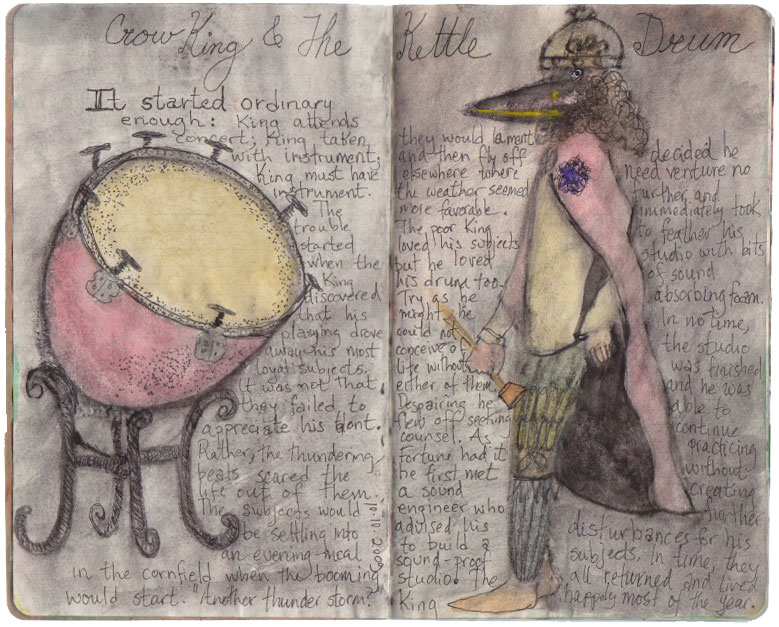 Crow King & The Kettle Drum
It started ordinary
enough: King attends
concert; King taken
with instrument;
King must have
instrument.
The
trouble
started
when the
King
discovered
that his
playing drove
away his most
loyal subjects.
It was not that
they failed to
appreciate his
Rather, the thundering
beats scared the
life out of them.
The subjects would
be settling into
an evening meal
in the cornfield when the booming
would start. "Another thunder storm?"
10.10.2009
they would lament
and then fly off
elsewhere where
the weather seemed
more favorable.
The poor King
loved his subjects
but he loved
his drum too.
Try as he
might he
could not
conceive of
life without
either of them.
Despairing he
flew off seeking
counsel. As
fortune had it
he first met
a sound
engineer who
advised his
to build a
sound-proof
studio. The
King
decided he
need venture no
further and
immediately took
to feather his
studio with bits
of sound
absorbing foam.
In no time,
the studio
was finished
and he was
able to
continue
practicing
without
creating
further
disturbances for his
subjects. In time, they
all returned and lived
happily most of the year.